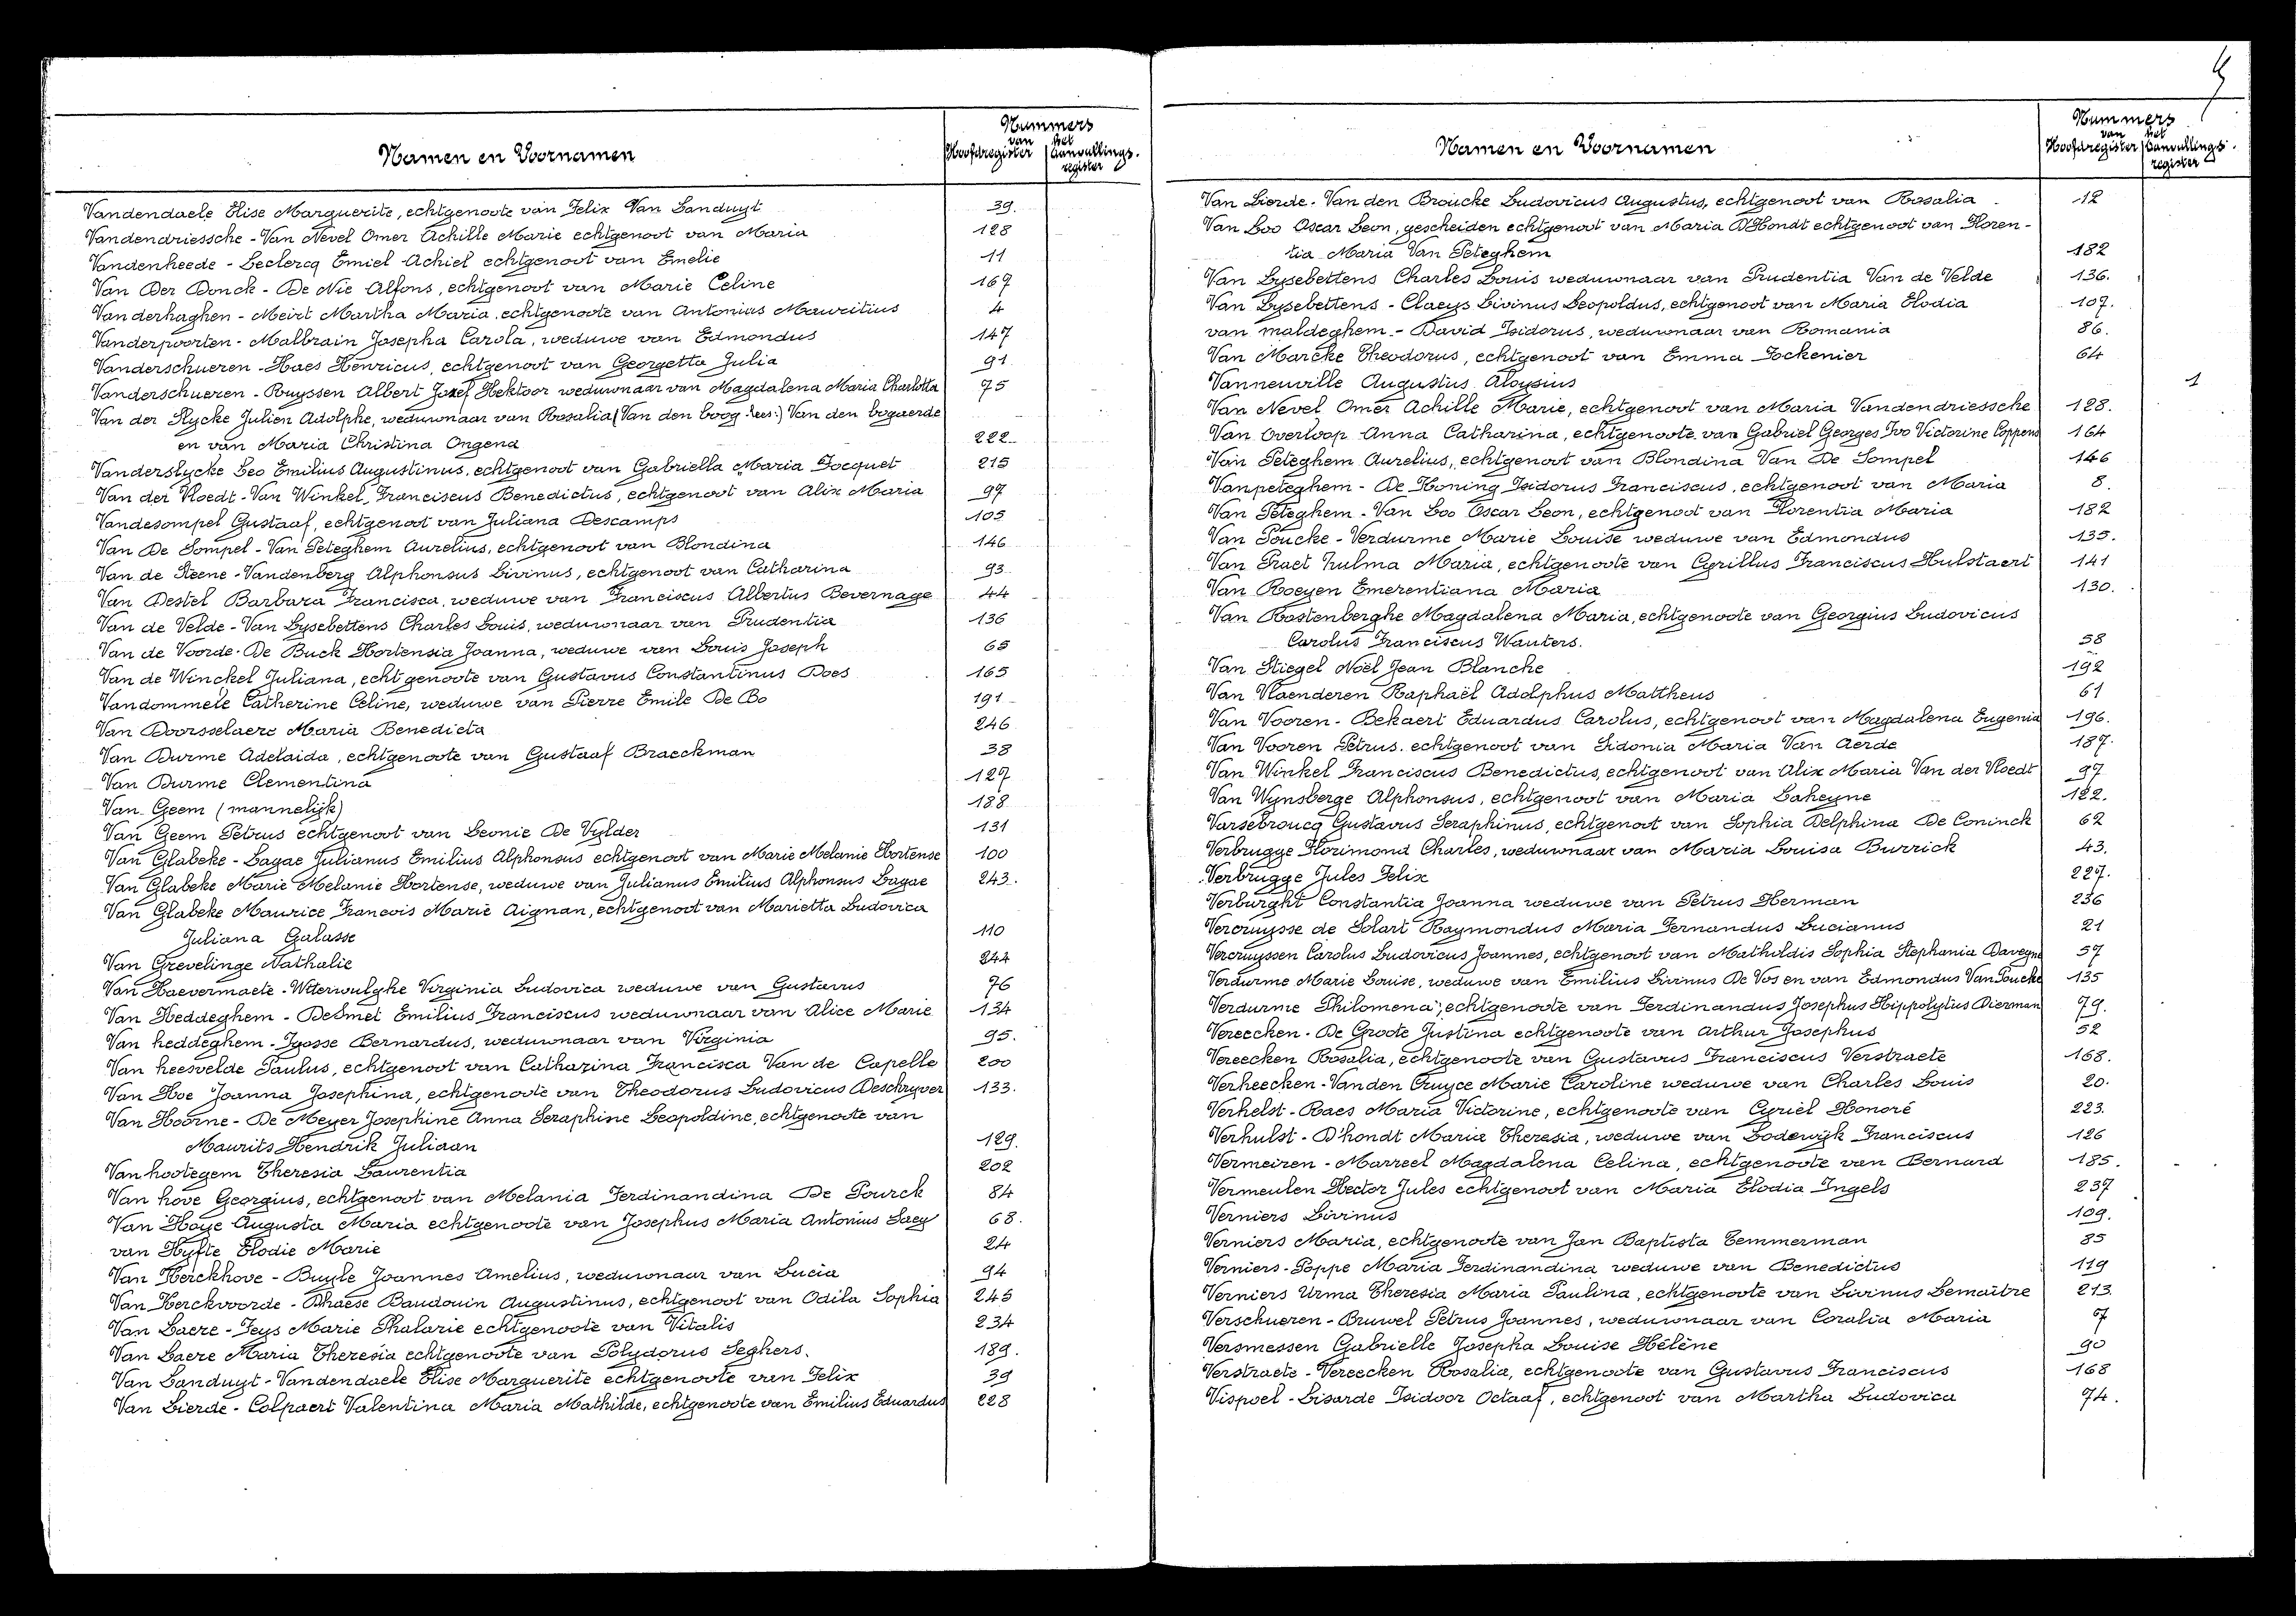 Namen en Voornamen
Nummers
van het
Hoofdregister Aanvullings-
register
Vandendaele Elise Marguerite, echtgenoote van Felix Van Landuyt 39.
Vandendriessche - Van Nevel Omer Achille Marie echtgenoot van Maria 128
Vandenheede - Leclercq Emiel Achiel echtgenoot van Emelie 11
Van Der Donck - De Nie Alfons, echtgenoot van Marie Celine 167
Vanderhaghen - Meirt Martha Maria, echtgenoote van Antonius Mauritius 4
Vanderpoorten - Malbrain Josepha Carola, weduwe van Edmondus 147
Vanderschueren - Haes Henricus, echtgenoot van Georgetta Julia 91
Vanderschueren - Buyssen Albert Jozef Hektoor weduwnaar van Magdalena Maria Charlotta 75
Van der Slycke Julien Adolphe, weduwnaar van Rosalia (Van den boog lees:) Van den bogaerde
en van Maria Christina Ongena 222
Vanderslycke Leo Emilius Augustinus, echtgenoot van Gabriella Maria Jocquet 215
Van der Vloedt - Van Winkel Franciscus Benedictus, echtgenoot van Alix Maria 97
Vandesompel Gustaaf, echtgenoot van Juliana Descamps 105
Van De Sompel - Van Peteghem Aurelius, echtgenoot van Blondina 146
Van de Steene - Vandenberg Alphonsus Livinus, echtgenoot van Catharina 93
Van Destel Barbara Francisca, weduwe van Franciscus Albertus Bevernage 44
Van de Velde - Van Lysebettens Charles Louis, weduwnaar van Prudentia 136
Van de Voorde - De Buck Hortensia Joanna, weduwe van Louis Joseph 65
Van de Winckel Juliana, echtgenoote van Gustavus Constantinus Does 165
Vandommele Catherine Celine, weduwe van Pierre Emile De Bo 191
Van Doorsselaere Maria Benedicta 246
Van Durme Adelaida, echtgenoote van Gustaaf Braeckman 38
Van Durme Clementina 127
Van Geem (mannelijk) 188
Van Geem Petrus echtgenoot van Leonie De Vylder 131
Van Glabeke - Lagae Julianus Emilius Alphonsus echtgenoot van Marie Melanie Hortense 100
Van Glabeke Marie Melanie Hortense, weduwe van Julianus Emilius Alphonsus Lagae 243.
Van Glabeke Maurice Francois Marie Aignan, echtgenoot van Marietta Ludovica
Juliana Galasse 110
Van Grevelinge Nathalie 244
Van Haevermaete - Uiterwulghe Virginia Ludovica weduwe van Gustavus 76
Van Heddeghem - Desmet Emilius Franciscus weduwnaar van Alice Marie 134
Van heddeghem - Igosse Bernardus, weduwnaar van Virginia 95.
Van heesvelde Paulus, echtgenoot van Catharina Francisca Van de Capelle 200
Van Hoe Joanna Josephina, echtgenoote van Theodorus Ludovicus Deschryver 133.
Van Hoorne - De Meyer Josephine Anna Seraphine Leopoldine, echtgenoote van
Maurits Hendrik Juliaan 129.
Van hootegem Theresia Laurentia 202
Van hove Georgius, echtgenoot van Melania Ferdinandina De Pourck 84
Van Hoye Augusta Maria echtgenoote van Josephus Maria Antonius Saey 68.
van Hyfte Elodie Marie 24
Van Kerckhove - Buyle Joannes Amelius, weduwnaar van Lucia 94
Van Kerckvoorde - Dhaese Baudouin Augustinus, echtgenoot van Odila Sophia 245
Van Laere - Feys Marie Phalarie echtgenoote van Vitalis 234
Van Laere Maria Theresia echtgenoote van Polydorus Seghers. 189.
Van Landuyt - Vandendaele Elise Marguerite echtgenoote van Felix 39
Van Lierde - Colpaert Valentina Maria Mathilde, echtgenoote van Emilius Eduardus 228
Namen en Voornamen
Nummers
van het
Hoofdregister Aanvullings-
register
Van Lierde - Van den Broucke Ludovicus Augustus, echtgenoot van Rosalia 12
Van Loo Oscar Leon, gescheiden echtgenoot van Maria D'Hondt echtgenoot van Floren-
tia Maria Van Peteghem 182
Van Lysebettens Charles Louis weduwnaar van Prudentia Van de Velde 136.
Van Lysebettens - Claeys Livinus Leopoldus, echtgenoot van Maria Elodia 107.
van maldeghem - David Isidorus, weduwnaar van Romania 86.
Van Marcke Theodorus, echtgenoot van Emma Fockenier 64
Vanneuville Augustus Aloysius 1
Van Nevel Omer Achille Marie, echtgenoot van Maria Vandendriessche 128.
Van Overloop Anna Catharina, echtgenoote van Gabriel Georges Ivo Victorine Coppens 164
Van Peteghem Aurelius, echtgenoot van Blondina Van De Sompel 146
Vanpeteghem - De Koning Isidorus Franciscus, echtgenoot van Maria 8.
Van Peteghem - Van Loo Oscar Leon, echtgenoot van Florentia Maria 182
Van Poucke - Verdurme Marie Louise weduwe van Edmondus 135.
Van Praet Zulma Maria, echtgenoote van Cyrillus Franciscus Hulstaert 141
Van Roeyen Emerentiana Maria 130.
Van Rostenberghe Magdalena Maria, echtgenoote van Georgius Ludovicus
Carolus Franciscus Wauters. 58
Van Stiegel Noël Jean Blanche 192
Van Vlaenderen Raphaël Adolphus Mattheus 61
Van Vooren - Bekaert Eduardus Carolus, echtgenoot van Magdalena Eugenia 196.
Van Vooren Petrus. echtgenoot van Sidonia Maria Van Aerde 187.
Van Winkel Franciscus Benedictus, echtgenoot van Alix Maria Van der Vloedt 97
Van Wynsberge Alphonsus, echtgenoot van Maria Lakeyne 122.
Varsebroucq Gustavus Seraphinus, echtgenoot van Sophia Delphina De Coninck 62
Verbrugge Florimond Charles, weduwnaar van Maria Louisa Burrick 43.
Verbrugge Jules Felix 227.
Verburght Constantia Joanna weduwe van Petrus Herman 236
Vercruysse de Solart Raymondus Maria Fernandus Lucianus 21
Vercruyssen Carolus Ludovicus Joannes, echtgenoot van Mathildis Sophia Stephania Daveyne 57
Verdurme Marie Louise, weduwe van Emilius Livinus De Vos en van Edmondus Van Poucke 135
Verdurme Philomena, echtgenoote van Ferdinandus Josephus Hippolytus Dierman 79.
Vereecken - De Groote Justina echtgenoote van Arthur Josephus 52
Vereecken Rosalia, echtgenoote van Gustavus Franciscus Verstraete 168.
Verheecken - Van den Cruyce Marie Caroline weduwe van Charles Louis 20.
Verhelst - Raes Maria Victorine, echtgenoote van Cyriel Honoré 223.
Verhulst - D'hondt Maria Theresia, weduwe van Lodewijk Franciscus 126
Vermeiren - Marreel Magdalena Celina, echtgenoote van Bernard 185.
Vermeulen Hector Jules echtgenoot van Maria Elodia Ingels 237
Verniers Livinus 109.
Verniers Maria, echtgenoote van Jan Baptista Temmerman 85
Verniers - Poppe Maria Ferdinandina weduwe van Benedictus 119
Verniers Urma Theresia Maria Paulina, echtgenoote van Livinus Lemaître 213.
Verschueren - Bruwel Petrus Joannes, weduwnaar van Coralia Maria 7
Versmessen Gabrielle Josepha Louise Hélène 90
Verstraete - Vereecken Rosalia, echtgenoote van Gustavus Franciscus 168
Vispoel - Lisarde Isidoor Octaaf, echtgenoot van Martha Ludovica 74.